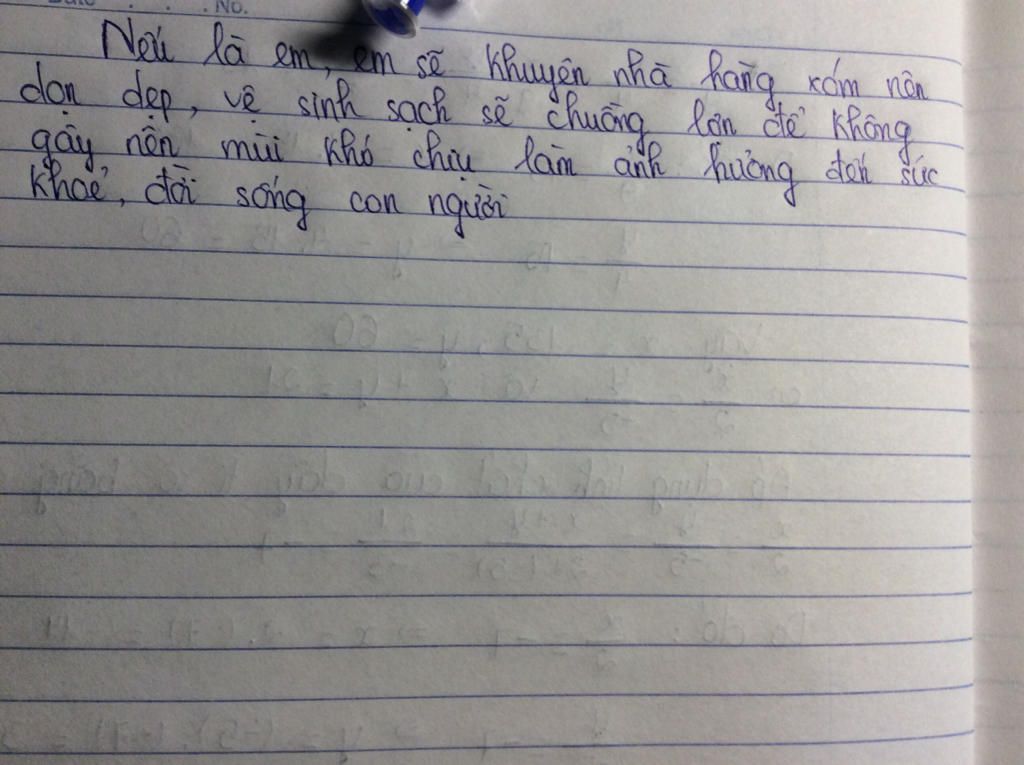 No.
Nếu là em, em sẽ khuyên nhà hàng xóm nên
dọn dẹp, vệ sinh sạch sẽ chuồng lợn để không
gây nên mùi khó chịu làm ảnh hưởng đến sức
khoẻ, đời sống con người